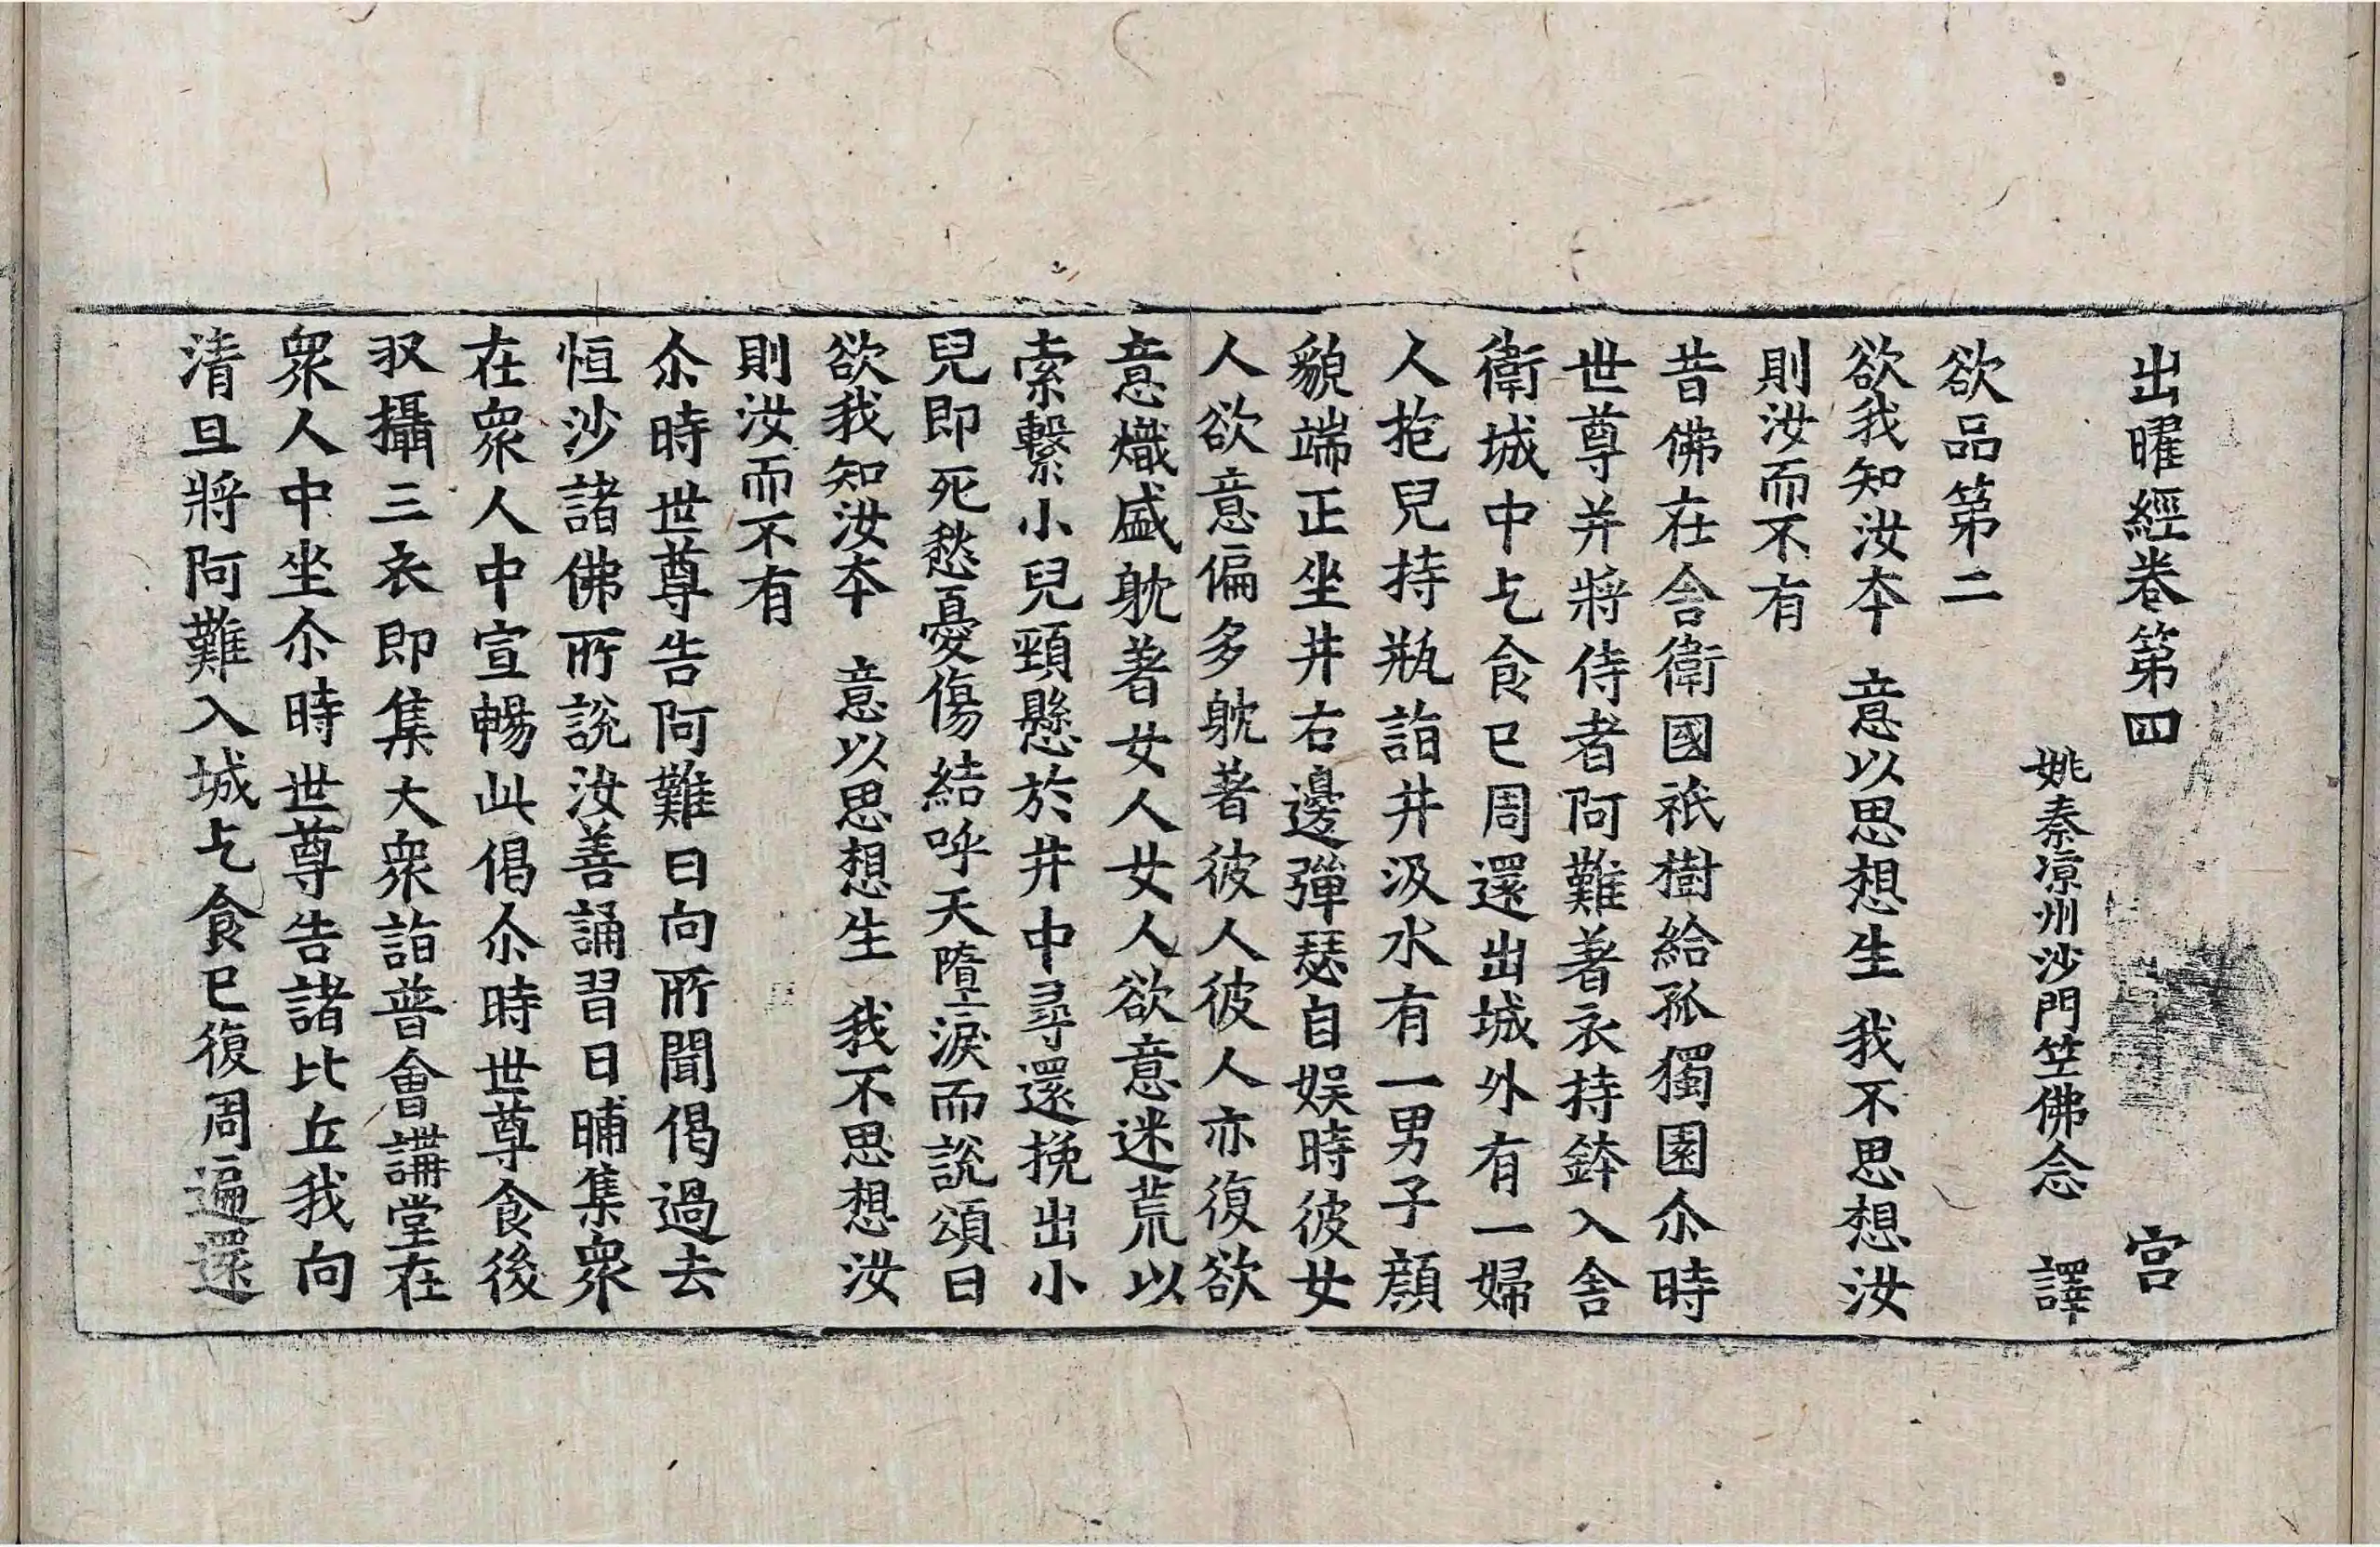 出曜經卷第四 宫
姚秦涼州沙門竺佛念 譯
欲品第二
欲我知汝本 意以思想生 我不思想汝
則汝而不有
昔佛在舍衛國祇樹給孤獨園尒時
世尊并將侍者阿難著衣持鉢入舍
衛城中乞食已周還出城外有一婦
人抱兒持瓶詣井汲水有一男子顔
貌端正坐井右邊彈瑟自娱時彼女
人欲意偏多躭著彼人彼人亦復欲
意熾盛躭著女人女人欲意迷荒以
索繫小兒頸懸於井中尋還挽出小
兒即死愁憂傷結呼天墮淚而說頌曰
欲我知汝本 意以思想生 我不思想汝
則汝而不有
尒時世尊告阿難曰向所聞偈過去
恒沙諸佛所說汝善誦習日晡集衆
在衆人中宣暢此偈尒時世尊食後
収攝三衣即集大衆詣普會講堂在
衆人中坐尒時世尊告諸比丘我向
清旦將阿難入城乞食已復周遍還